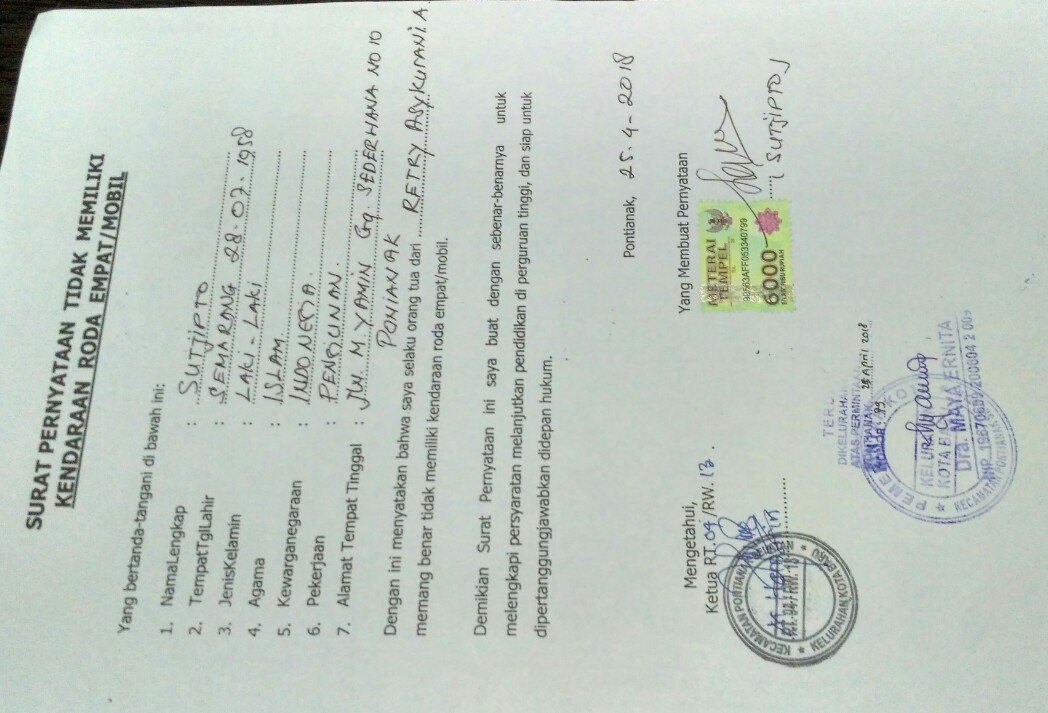 SURAT PERNYATAAN TIDAK MEMILIKI
KENDARAAN RODA EMPAT/MOBIL
Yang bertanda-tangani di bawah ini:
1. NamaLengkap : SUTJIPTO
2. TempatTglLahir : SEMARANG 28-07-1958
3. JenisKelamin : LAKI-LAKI
4. Agama : ISLAM
5. Kewarganegaraan : INDONESIA
6. Pekerjaan : PENSIUNAN
7. Alamat Tempat Tinggal : JLN. M YAMIN Gg. SEDERHANA NO 10
PONIANAK
Dengan ini menyatakan bahwa saya selaku orang tua dari RETRY ASYKURANI A.
memang benar tidak memiliki kendaraan roda empat/mobil.
Demikian Surat Pernyataan ini saya buat dengan sebenar-benarnya untuk
melengkapi persyaratan melanjutkan pendidikan di perguruan tinggi, dan siap untuk
dipertanggungjawabkan didepan hukum.
Pontianak, 25-4-2018
Mengetahui,
Ketua RT.04/RW.13.
Yang Membuat Pernyataan
METERAI
TEMPEL
6000
(SUTJIPTO)
KECAMATAN PONTIANAK SELATAN
KELURAHAN KOTA BARU
DIKELURAHAN
ATAS PERMINTAAN
25 April 2018
KELURAHAN
KOTA BARU
Dra. MAYA ERNITA
KECAMATAN PONTIANAK